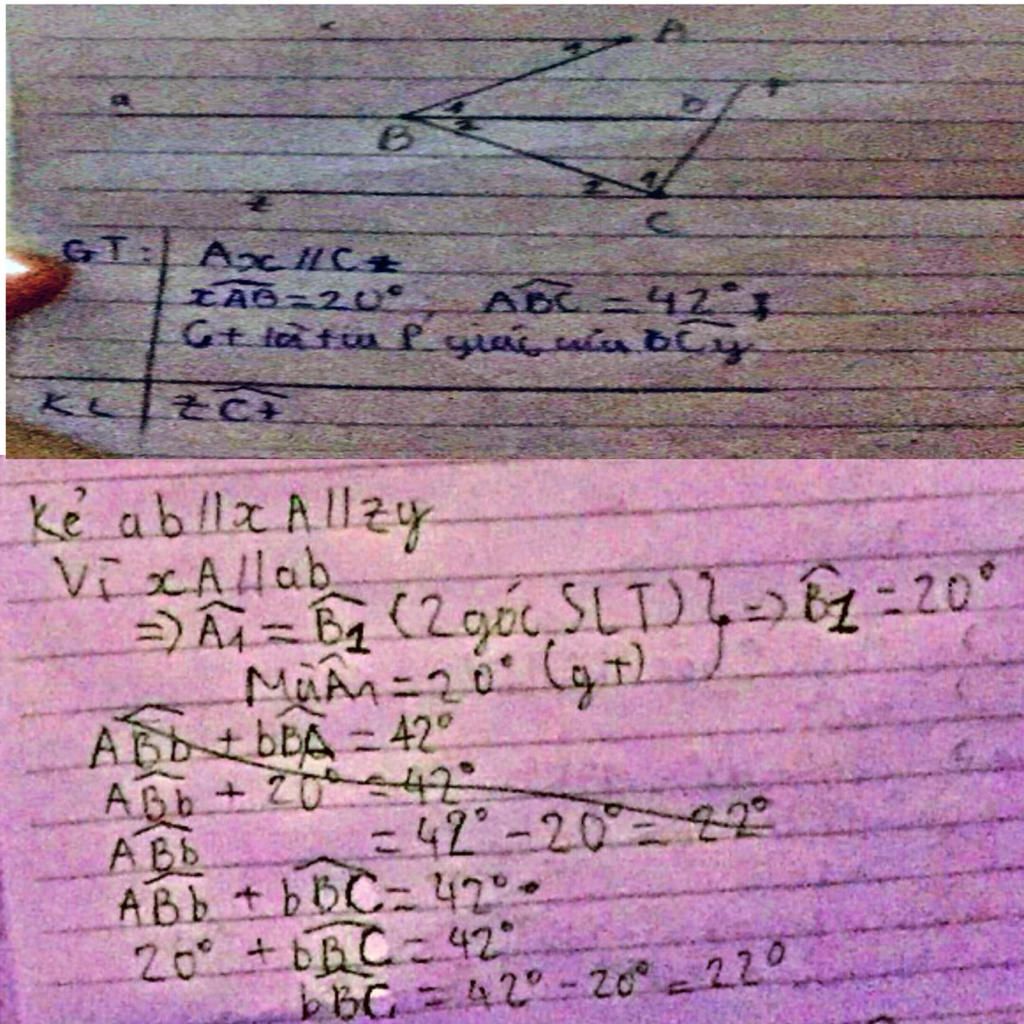 x A
1
a B 1 2 b t
z 2 1 C
GT: Ax // Cz
xAB = 20°, ABC = 42°
Ct là tia p giác của BCy
KL zCt
Kẻ ab // xA // zy
Vì xA // ab
=> Â1 = B̂1 (2 góc SLT) } => B̂1 = 20°
Mà Â1 = 20° (gt)
ABb + bBA = 42°
ABb + 20° = 42°
ABb = 42° - 20° = 22°
ABb + bBC = 42°
20° + bBC = 42°
bBC = 42° - 20° = 22°